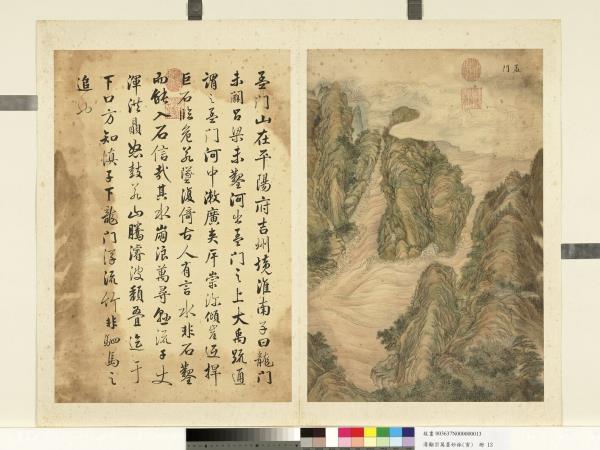 孟門山在平陽府吉州境淮南子曰龍門
未闢呂梁未鑿河出孟門之上大禹疏通
謂之孟門河中漱廣夾岸崇深傾崖返捍
巨石臨危若墜復倚古人有言水非石鑿
而能入石信哉其水崩浪萬尋懸流千丈
渾洪贔怒鼓若山騰濬波頹疊迄于
下口方知慎子下龍門浮流竹非駟馬之
追也
孟門
故畫 003637N000000013
冊 13